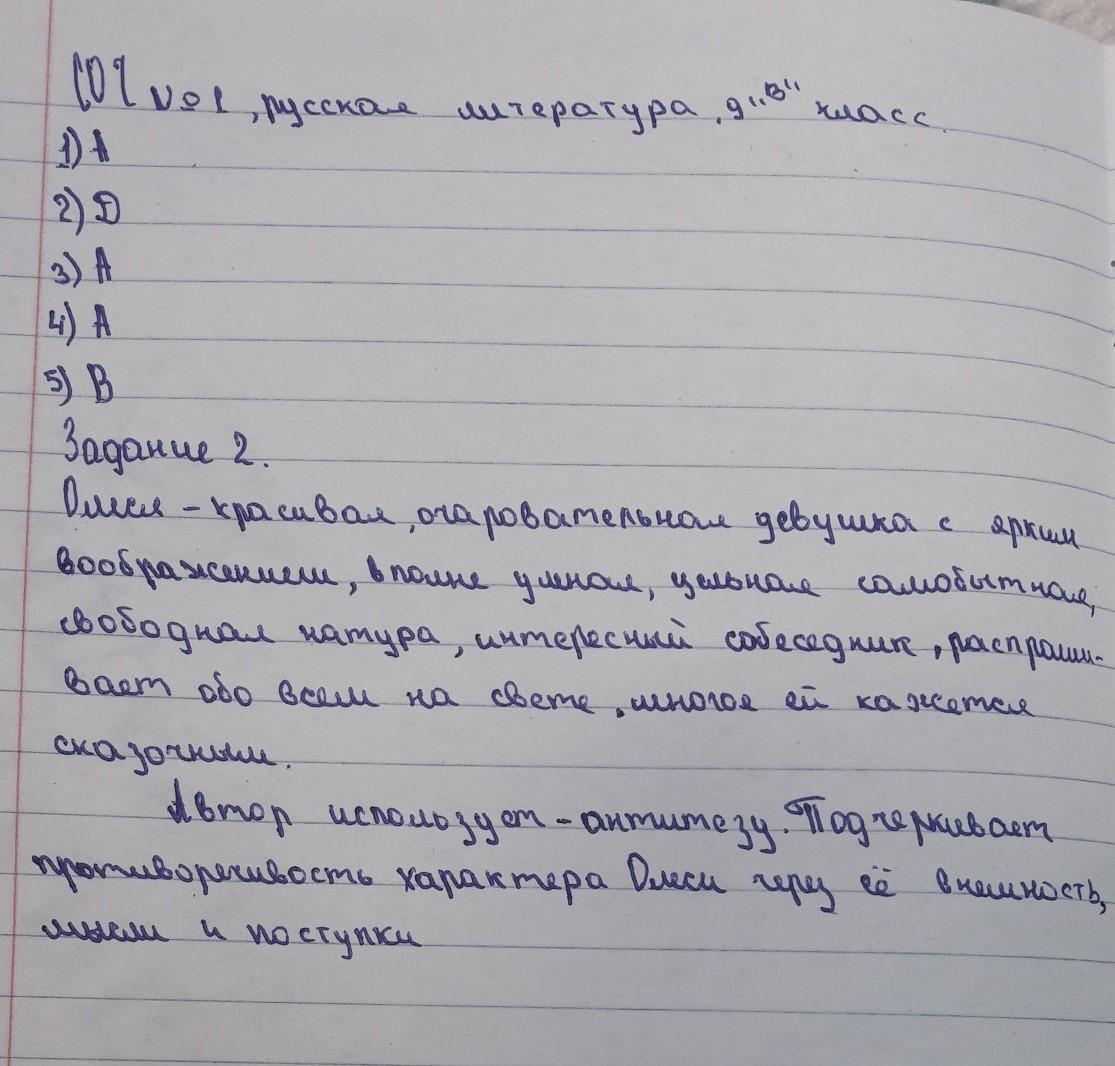 СОЧ №1, русская литература, 9 "В" класс.
1) А
2) D
3) А
4) А
5) В
Задание 2.
Олеся - красивая, очаровательная девушка с ярким
воображением, вполне умная, цельная самобытная,
свободная натура, интересный собеседник, распраши-
вает обо всем на свете, многое ей кажется
сказочным.
Автор использует - антитезу. Подчеркивает
противоречивость характера Олеси через её внешность,
мысли и поступки